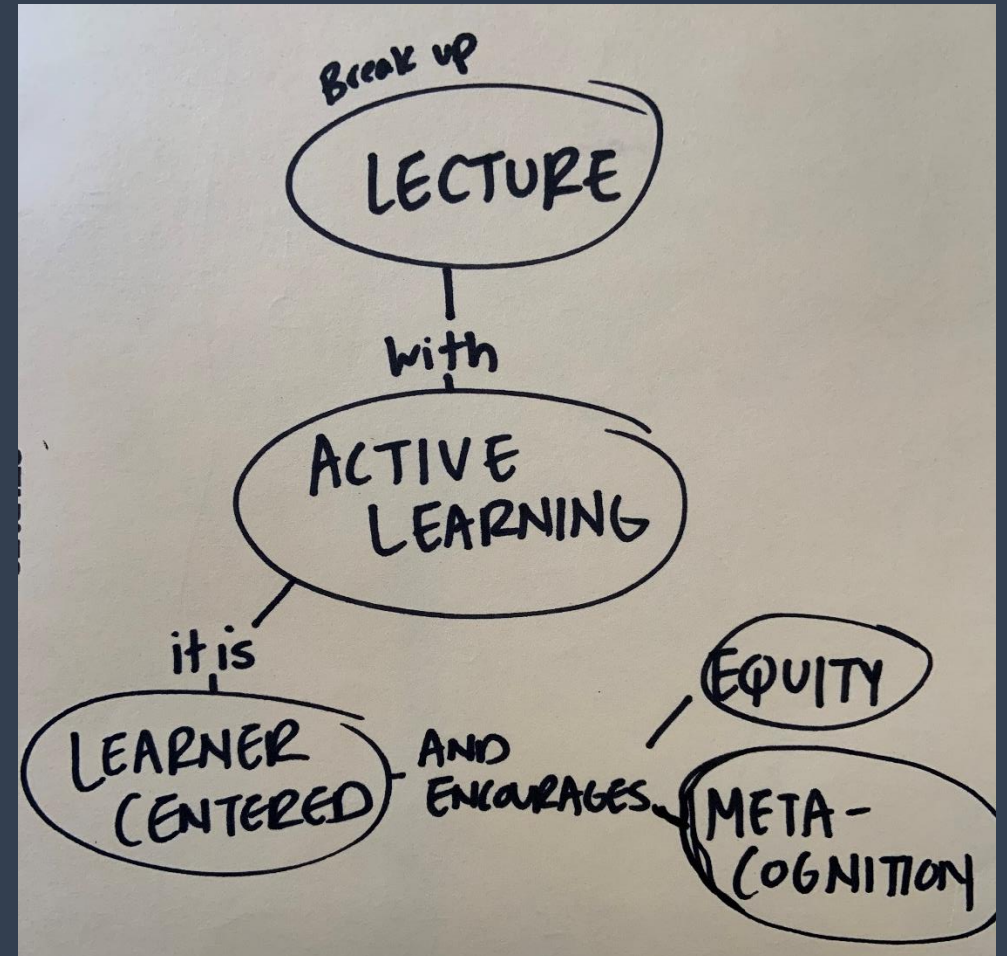 Break up
LECTURE
with
ACTIVE
LEARNING
it is
LEARNER
CENTERED
AND
ENCOURAGES
EQUITY
META-
COGNITION